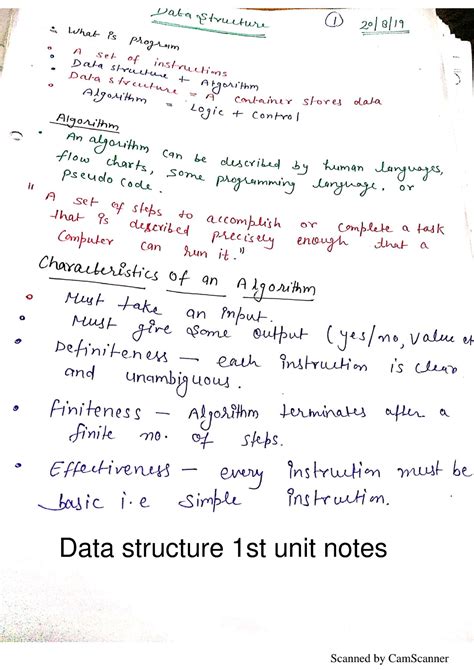 Data Structure ① 20/8/19
What is program
A set of instructions
Data structure + Algorithm
Data structure = A container stores data
Algorithm = Logic + Control
Algorithm
An algorithm can be described by human languages,
flow charts, some programming language, or
pseudo code.
"A set of steps to accomplish or complete a task
that is described precisely enough that a
Computer can run it."
Characteristics of an Algorithm
Must take an input.
Must give some output (yes/no, value et
Definiteness — each instruction is clear
and unambiguous.
Finiteness — Algorithm terminates after a
finite no. of steps.
Effectiveness — every instruction must be
basic i.e simple instruction.
Data structure 1st unit notes
Scanned by CamScanner